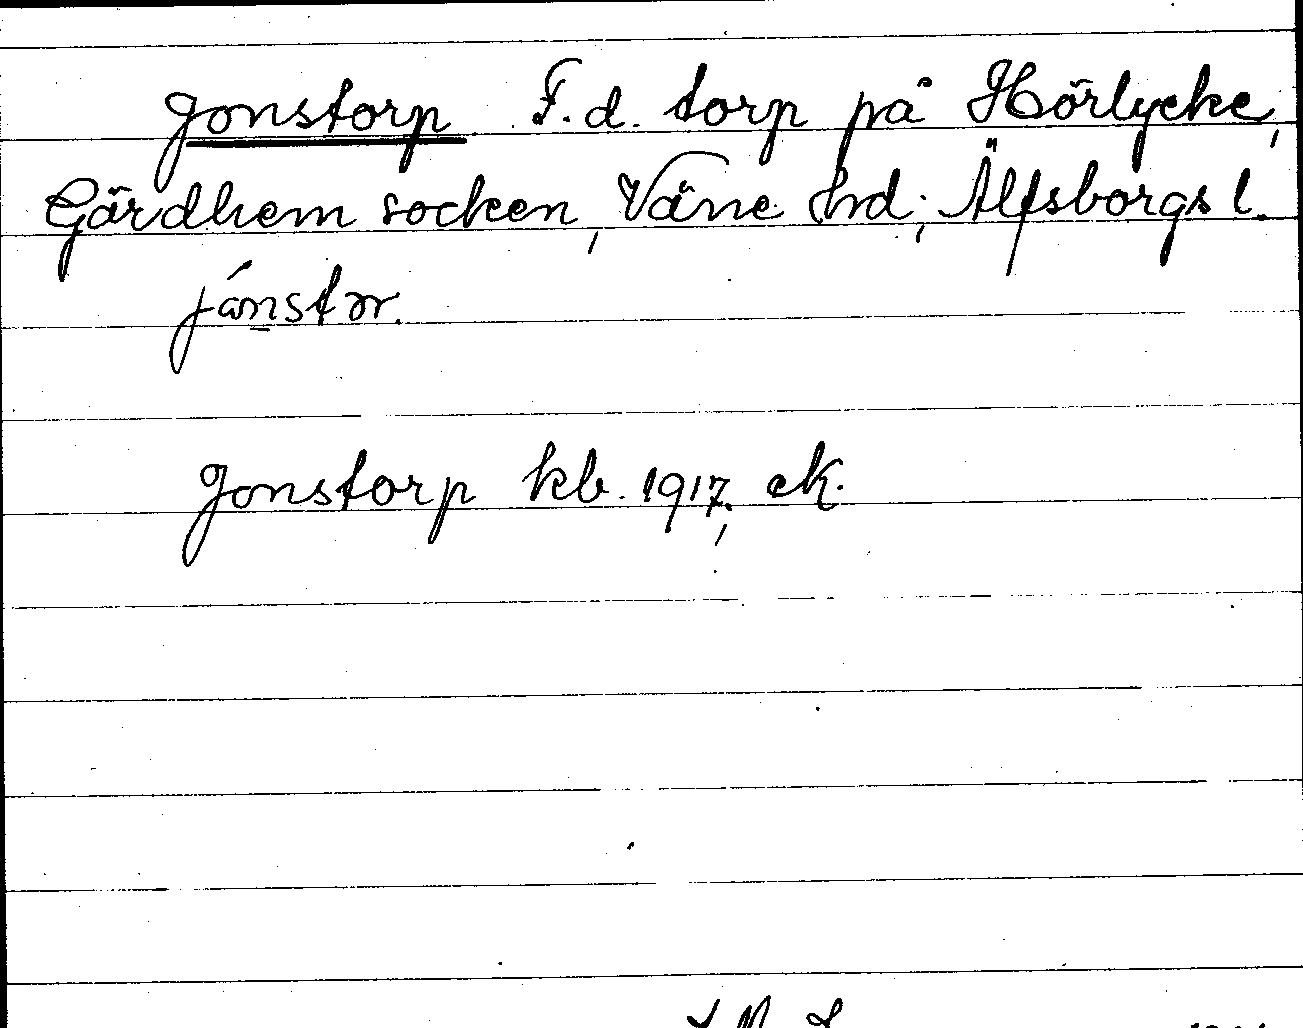 Jonstorp F.d. torp på Hörlycke,
Gärdhem socken, Väne hd; Älfsborgs l.
jånstər.
Jonstorp kb. 1917; ek.